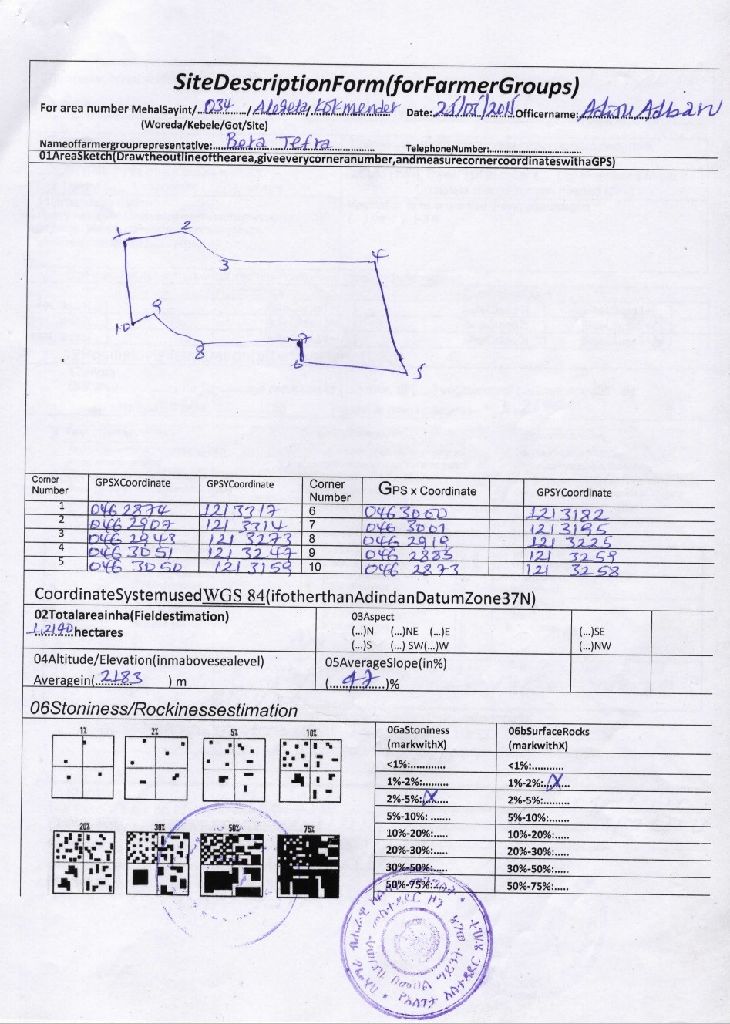 SiteDescriptionForm(forFarmerGroups)
For area number MehalSayint/..034../Alegeta/Kokmender Date: Officername: Adbaru
(Woreda/Kebele/Got/Site)
Nameoffarmergrouprepresentative:.. Tefra TelephoneNumber:
01AreaSketch(Drawtheoutlineofthearea,giveeverycorneranumber,andmeasurecornercoordinateswithaGPS)
1 2 3 4
10 9 8 7 6 5
Corner Number GPSXCoordinate GPSYCoordinate Corner Number GPS x Coordinate GPSYCoordinate
1 0462874 1213317 6 0463060 1213182
2 0462907 1213314 7 0463061 1213195
3 0462943 1213273 8 0462919 1213225
4 0463051 1213247 9 0462885 1213259
5 0463050 1213159 10 0462873 1213258
CoordinateSystemusedWGS 84(ifotherthanAdindanDatumZone37N)
02Totalareainha(Fieldestimation) 03Aspect
1.2140hectares (...)N (...)NE (...)E (...)SE
(...)S (...) SW(...)W (...)NW
04Altitude/Elevation(inmabovesealevel) 05AverageSlope(in%)
Averagein(..2183..) m (............)%
06Stoniness/Rockinessestimation
1% 2% 5% 10%
20% 30% 50% 75%
06aStoniness (markwithX) 06bSurfaceRocks (markwithX)
<1%:............ <1%:...........
1%-2%:......... 1%-2%:..X...
2%-5%:..X.... 2%-5%:........
5%-10%: ...... 5%-10%:......
10%-20%:..... 10%-20%:.....
20%-30%:..... 20%-30%:.....
30%-50%:..... 30%-50%:.....
50%-75%:..... 50%-75%:.....